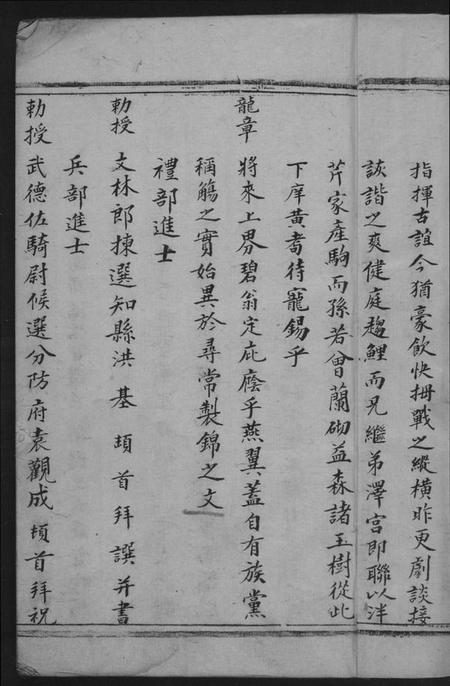 指揮古誼今猶豪飲快拇戰之縱橫昨更劇談接
詼諧之爽健庭趨鯉而兄繼弟澤宮即聯以泮
芹家產駒而孫若曾蘭砌益森諸玉樹從此
下庠黄耈待寵錫乎
龍章
將來上界碧翁定庇廕乎燕翼蓋自有族黨
稱觴之實始異於尋常製錦之文
禮部進士
勅授文林郎揀選知縣洪基頓首拜譔并書
兵部進士
勅授武德佐騎尉候選分防府袁觀成頓首拜祝